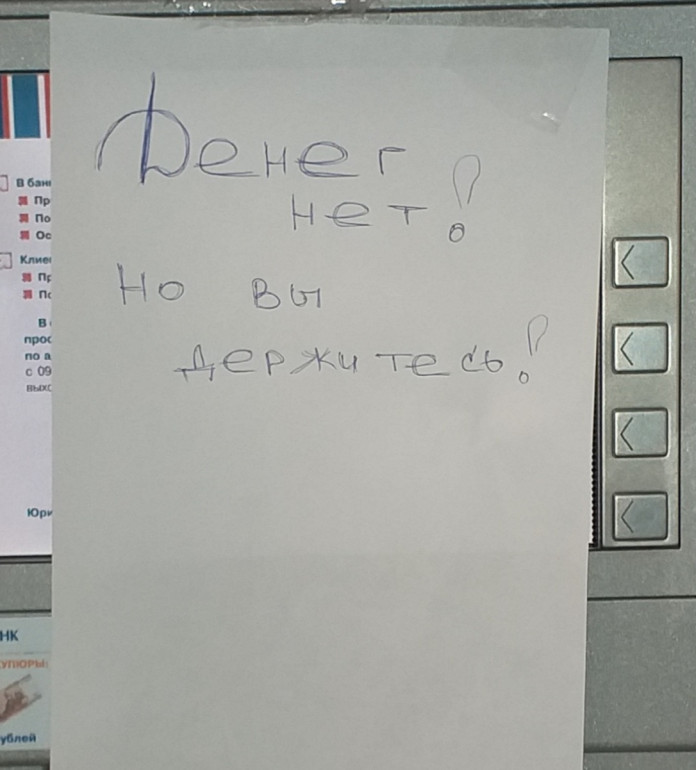 Денег
нет!
Но вы
держитесь!
В бан
Пр
По
Ос
Клие
Пр
По
В
прос
по а
с 09
выхо
Юри
НК
КУПЮРЫ:
ублей